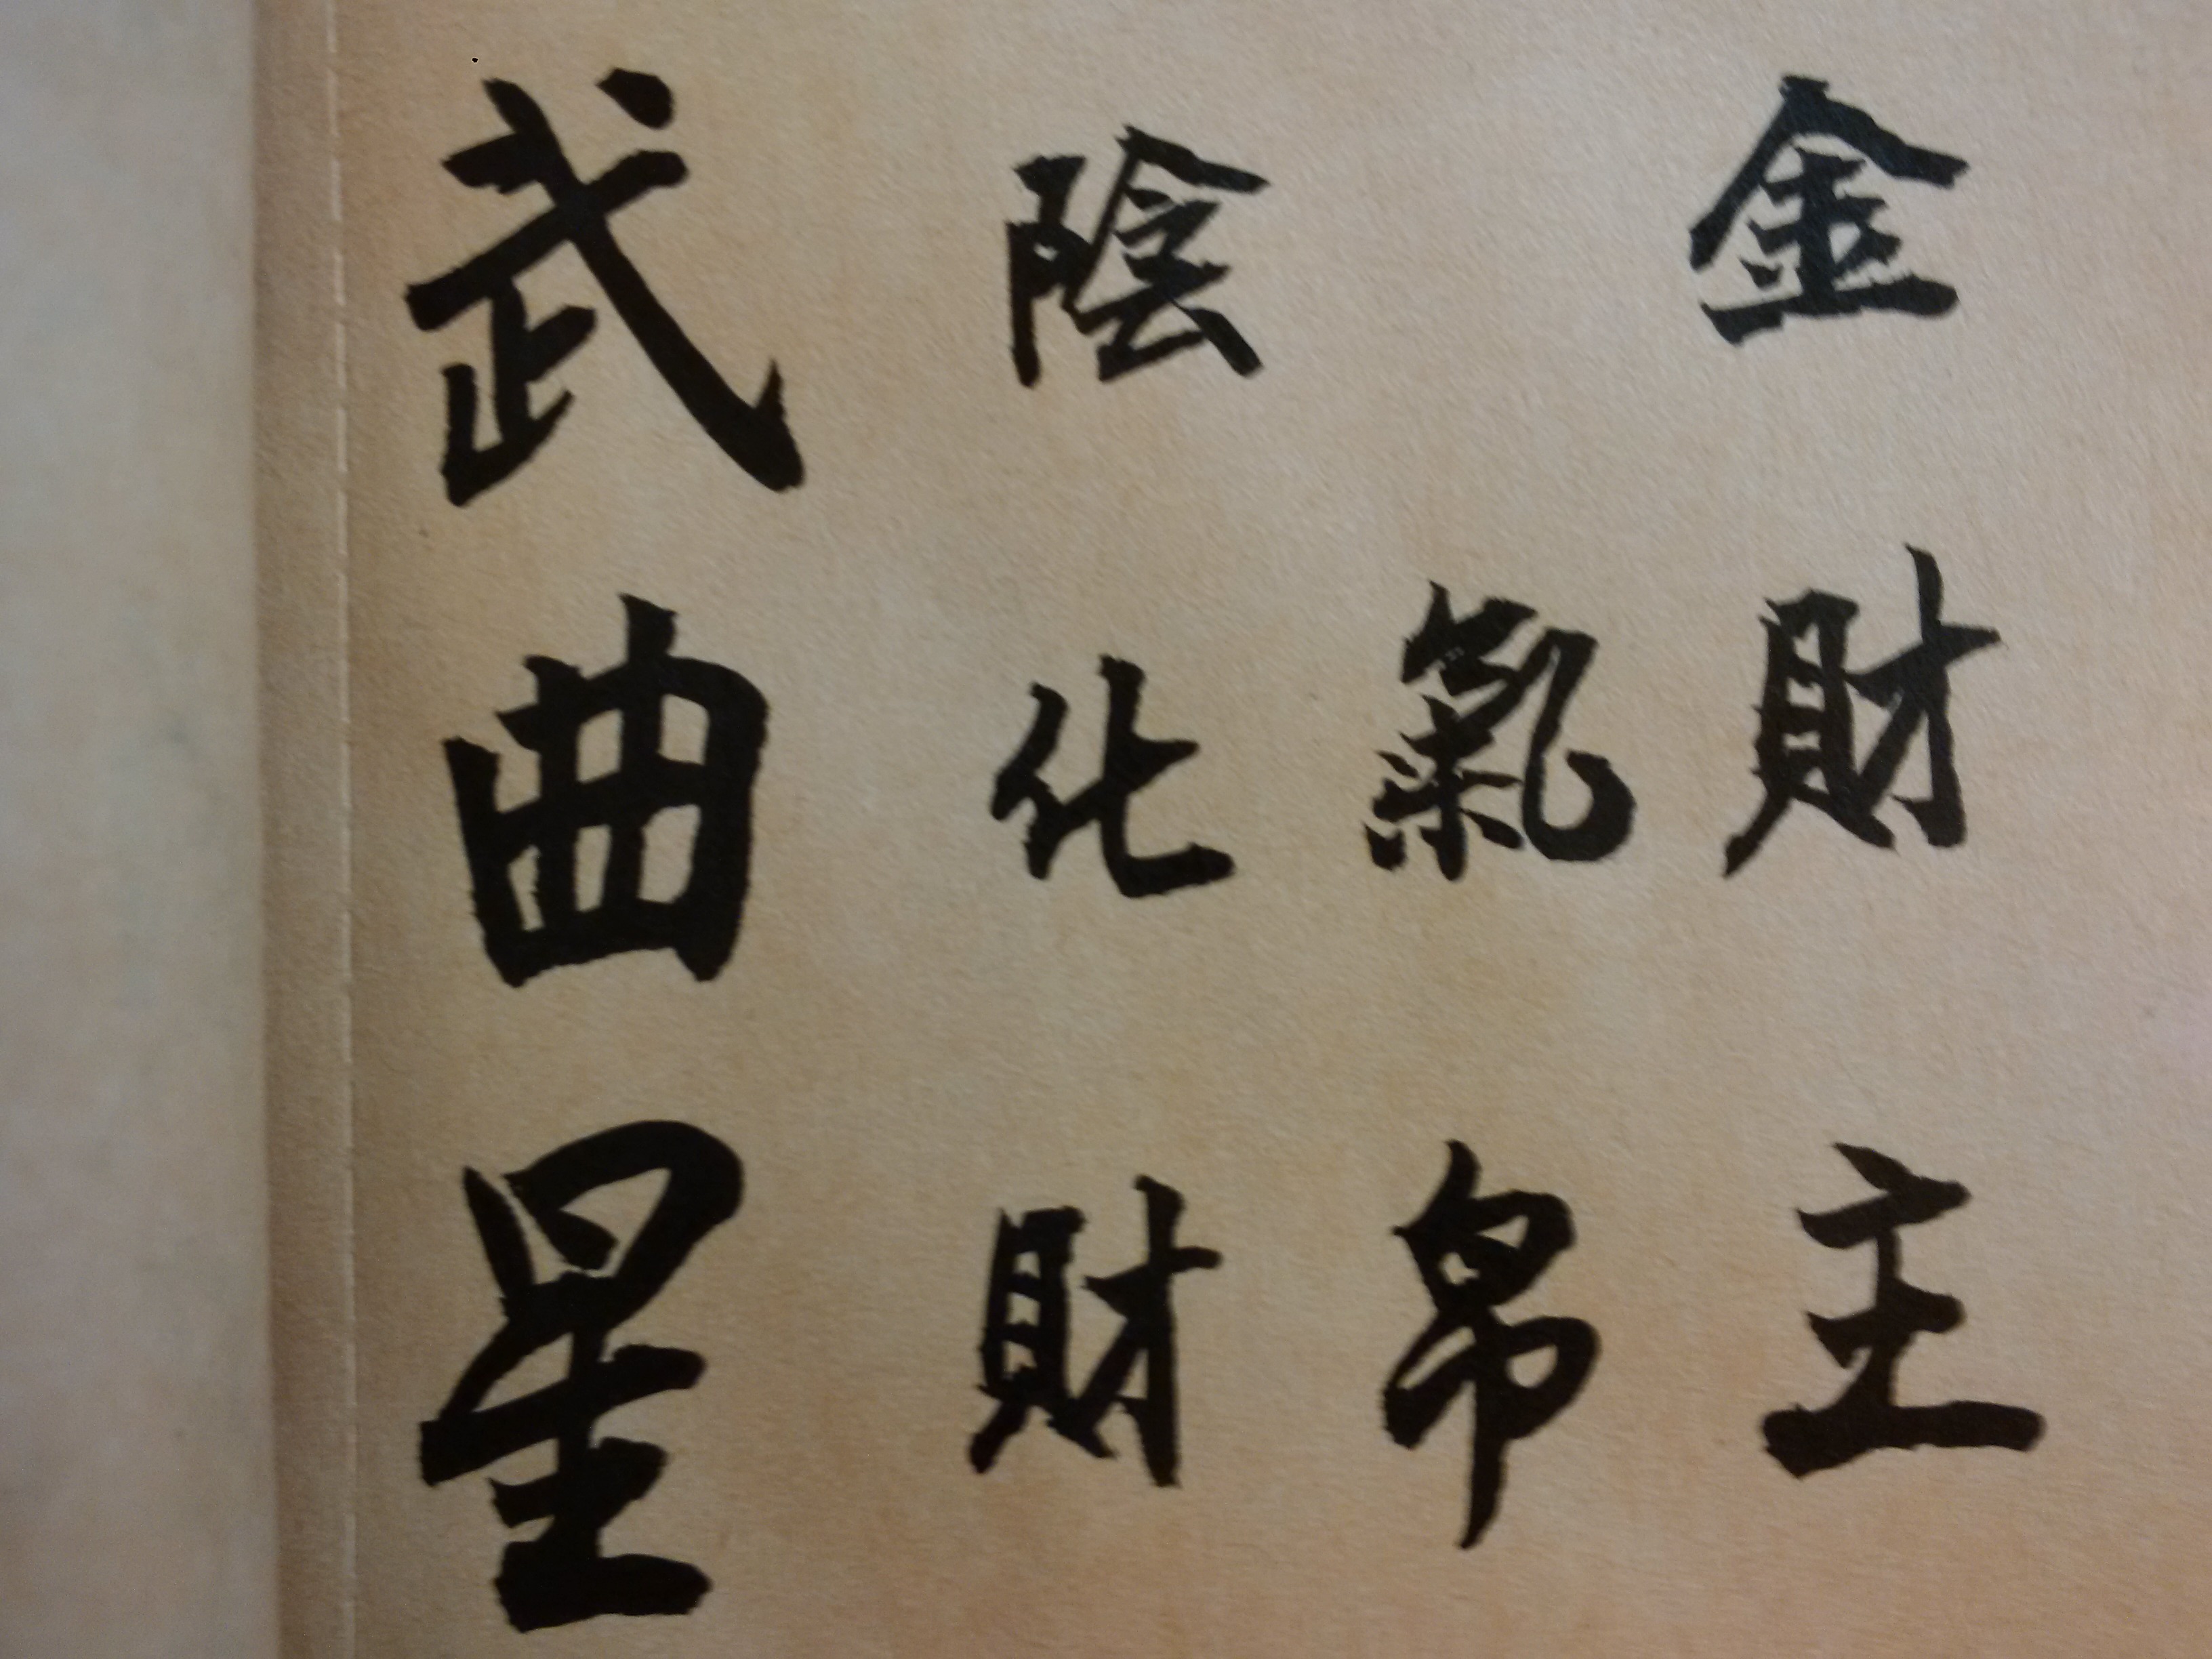 武曲星
陰金
化氣財
財帛主